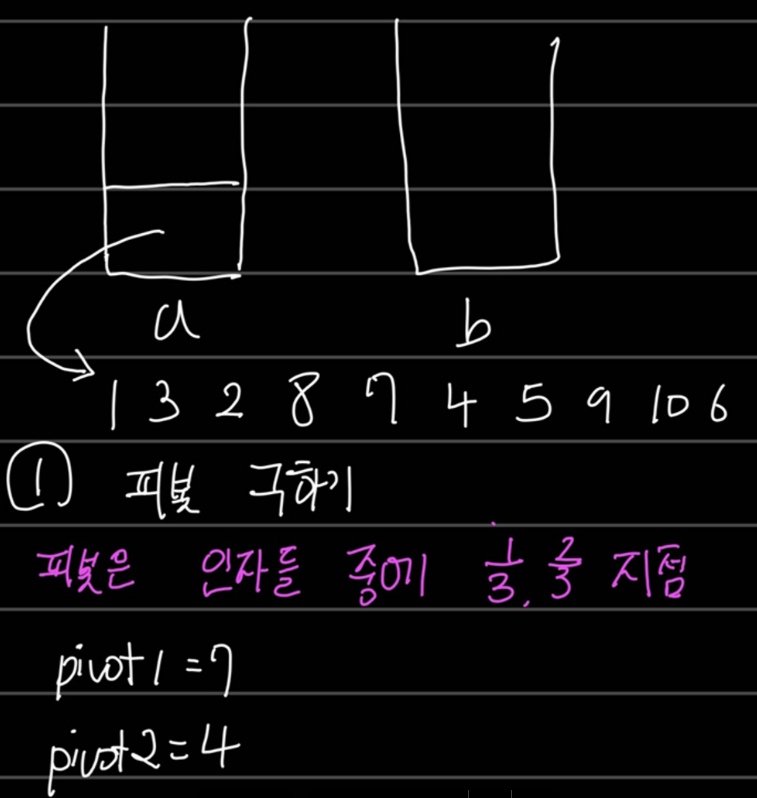 a b
1 3 2 8 7 4 5 9 10 6
① 피봇 구하기
피봇은 인자들 중에 1/3, 2/3 지점
pivot1=7
pivot2=4